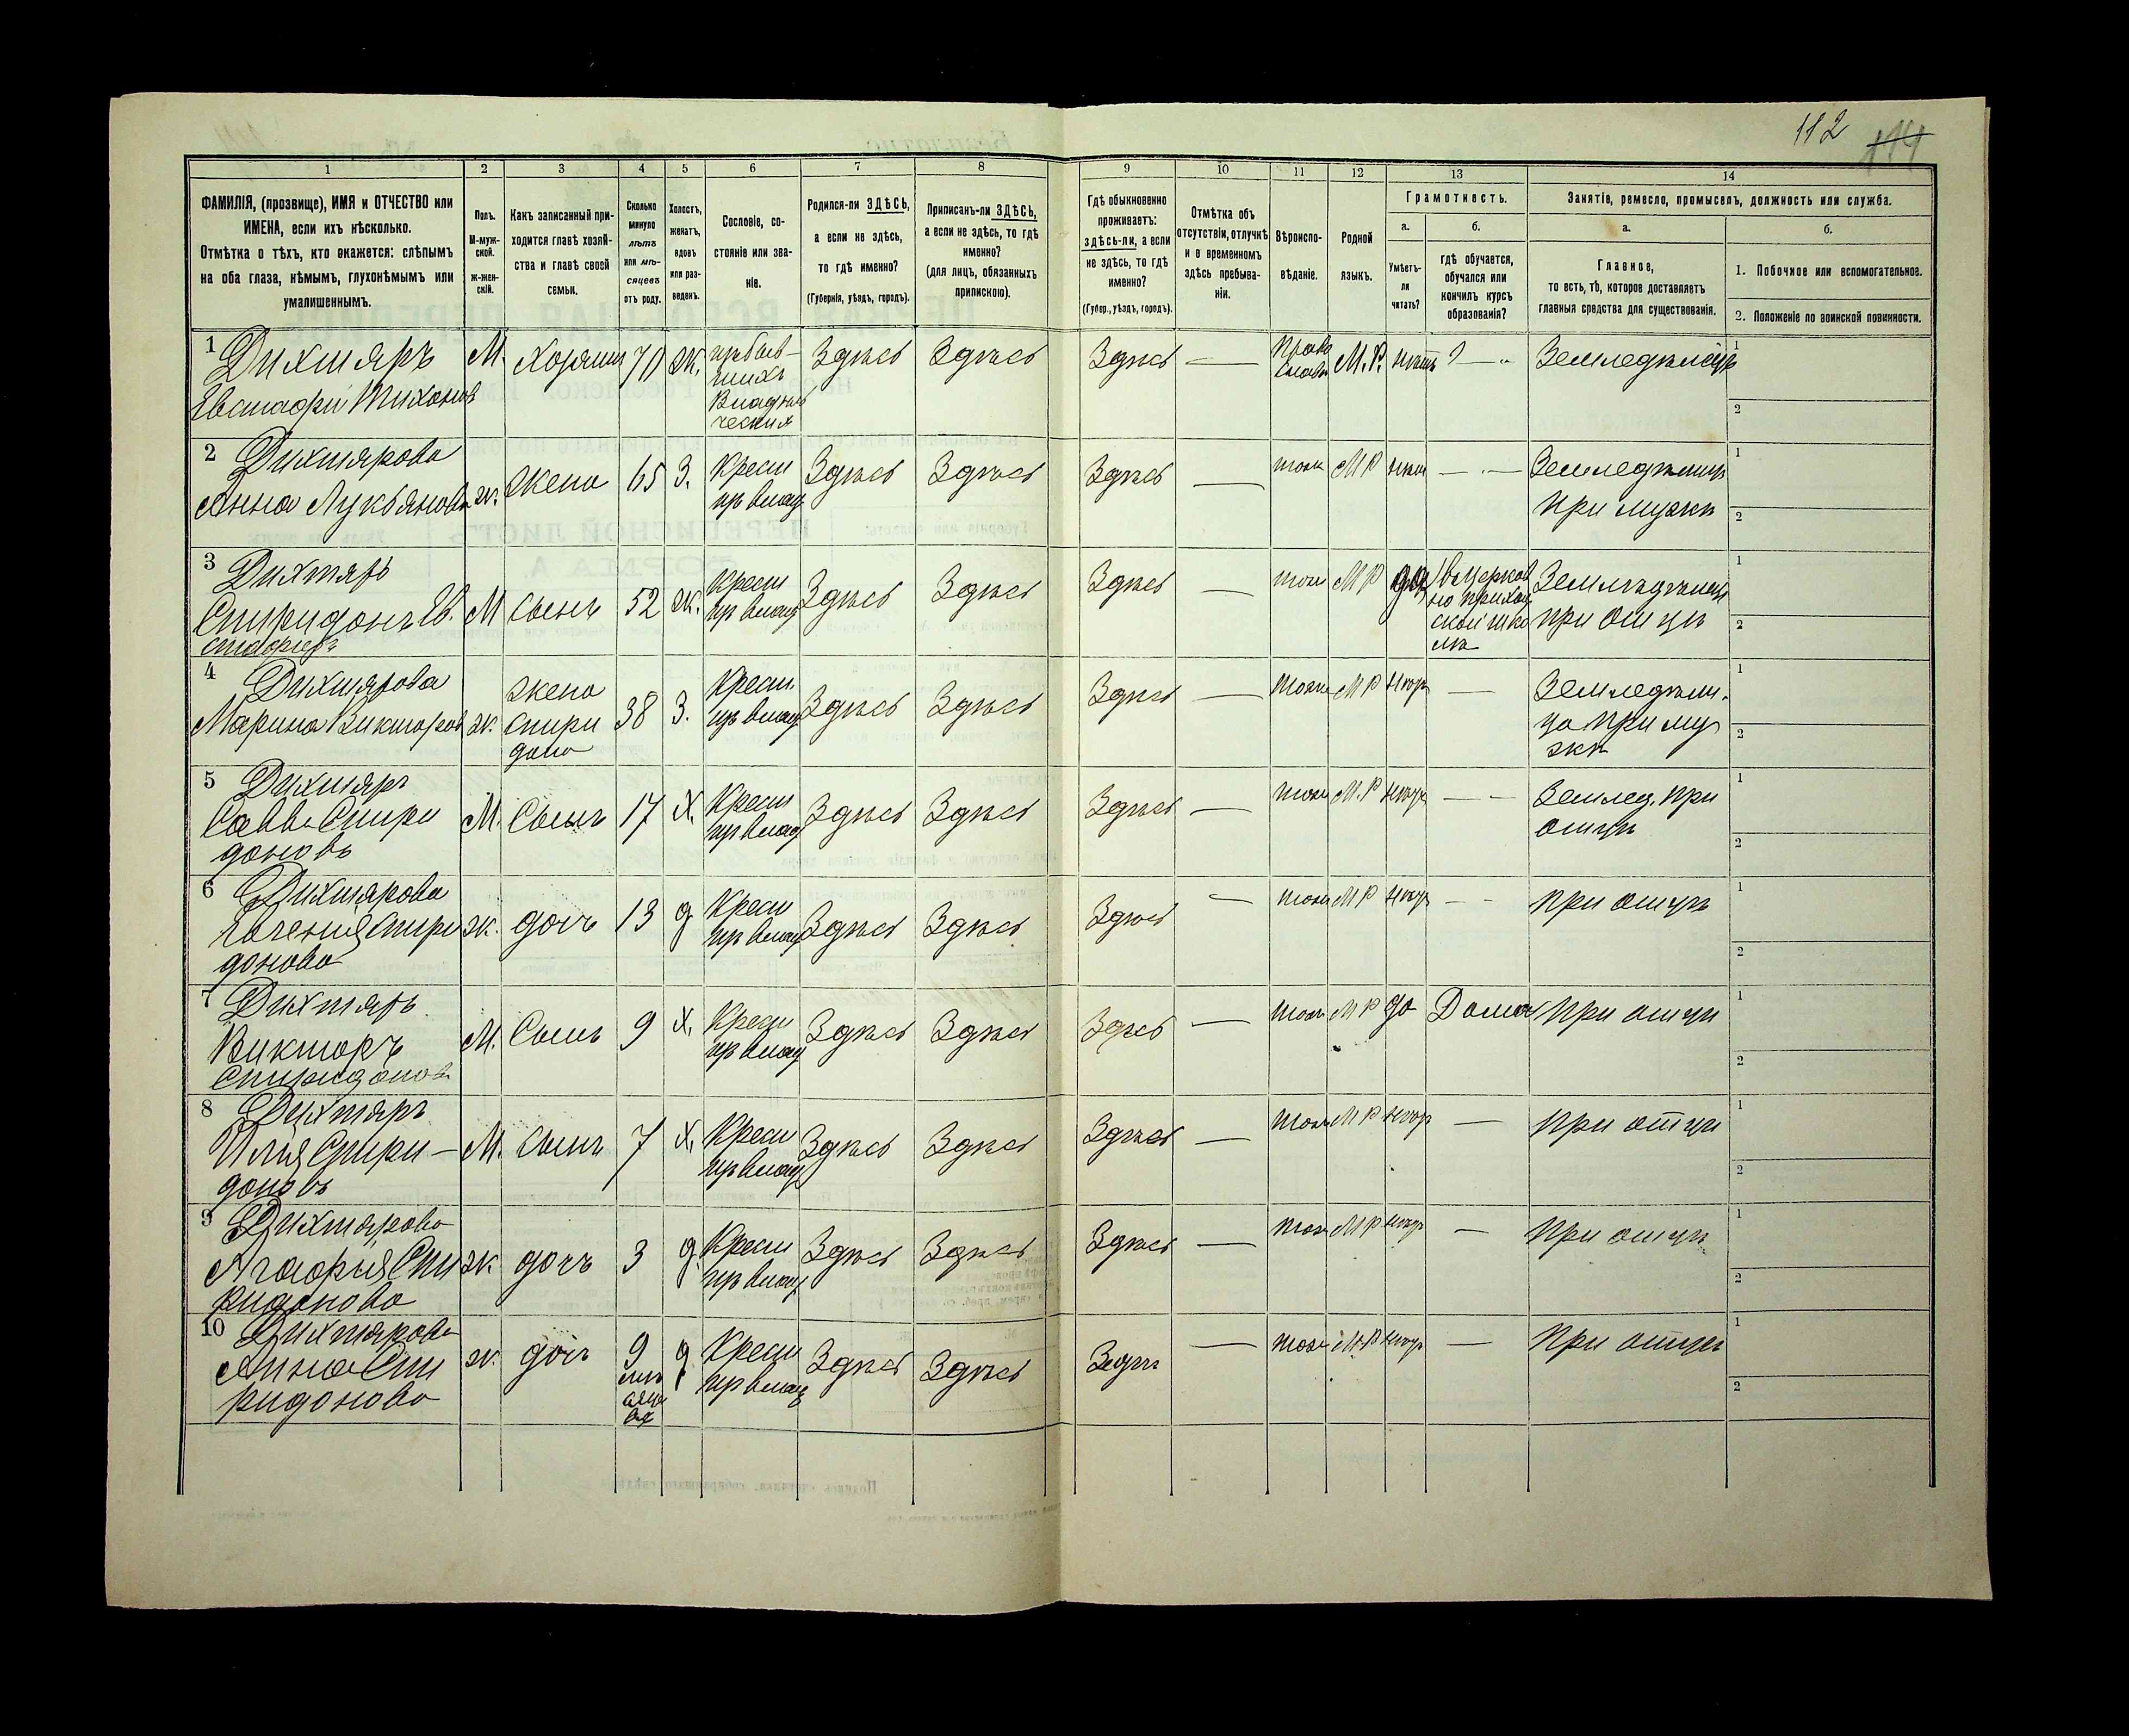 112 114
1 2 3 4 5 6 7 8 9 10 11 12 13 14
ФАМИЛІЯ, (прозвище), ИМЯ и ОТЧЕСТВО или
ИМЕНА, если ихъ нѣсколько.
Отмѣтка о тѣхъ, кто окажется: слѣпымъ
на оба глаза, нѣмымъ, глухонѣмымъ или
умалишеннымъ.
Полъ.
М-муж-
ской.
ж-жен-
скій.
Какъ записанный при-
ходится главѣ хозяй-
ства и главѣ своей
семьи.
Сколько
минуло
лѣтъ
или мѣ-
сяцевъ
отъ роду.
Холостъ,
женатъ,
вдовъ
или раз-
веденъ.
Сословіе, со-
стояніе или зва-
ніе.
Родился-ли ЗДѢСЬ,
а если не здѣсь,
то гдѣ именно?
(Губернія, уѣздъ, городъ).
Приписанъ-ли ЗДѢСЬ,
а если не здѣсь, то гдѣ
именно?
(для лицъ, обязанныхъ
припискою).
Гдѣ обыкновенно
проживаетъ:
здѣсь-ли, а если
не здѣсь, то гдѣ
именно?
(Губер., уѣздъ, городъ).
Отмѣтка объ
отсутствіи, отлучкѣ
и о временномъ
здѣсь пребыва-
ніи.
Вѣроиспо-
вѣданіе.
Родной
языкъ.
Грамотность.
а.
Умѣетъ-
ли
читать?
б.
гдѣ обучается,
обучался или
кончилъ курсъ
образованія?
Занятіе, ремесло, промыселъ, должность или служба.
а.
Главное,
то есть, то, которое доставляетъ
главныя средства для существованія.
б.
1. Побочное или вспомогательное.
2. Положеніе по воинской повинности.
1 Дихтяръ
Евстафи Тихонов
М. Хозяин 70 ж. Здѣсь Здѣсь Здѣсь — М.Р. нѣтъ Земледѣлецъ
1
2
2 Дихтярова
Анна Лукьянова
ж. жена 65 З. Крест
пр влад
Здѣсь Здѣсь Здѣсь — тоже М Р — Земледѣлица
при мужѣ
1
2
3 Дихтярь
Спиридонъ Ев.
стафіевъ
М сынъ 52 ж. Крест
пр влад
Здѣсь Здѣсь Здѣсь — тоже М Р да
в церков
но приход
ской шко
лѣ
при отцѣ
1
2
4 Дихтярова
Марина Викторов
ж. жена
Спири
дона
38 З. Крест.
пр влад
Здѣсь Здѣсь Здѣсь — тоже М Р — Земледѣли.
ца при му
жѣ
1
2
5 Дихтяръ
Савва Спири
доновъ
М. Сынъ 17 Х. Крест
пр влад
Здѣсь Здѣсь Здѣсь — тоже М.Р — Землед. при
отцѣ
1
2
6 Дихтярова
Евгения Спири
донова
ж. дочь 13 д Крест
пр влад
Здѣсь Здѣсь Здѣсь — тоже М Р — при отцѣ
1
2
7 Дихтярь
Викторъ
Спиридонов
М. Сынъ 9 Х. Крест
пр влад
Здѣсь Здѣсь Здѣсь — тоже М Р да Дома при отцѣ
1
2
8 Дихтяръ
Илья Спири-
доновъ
М. сынъ 7 Х. Крест
пр влад
Здѣсь Здѣсь Здѣсь — тоже М Р — при отцѣ
1
2
9 Дихтярова
Агафия Спи
ридонова
ж дочь 3 д. Крест
пр влад
Здѣсь Здѣсь Здѣсь — тоже М Р — при отцѣ
1
2
10 Дихтярова
Анна Спи
ридонова
ж. дочь 9
мѣ
сяце
въ
д Крест
пр влад
Здѣсь Здѣсь — тоже М.Р — при отцѣ
1
2